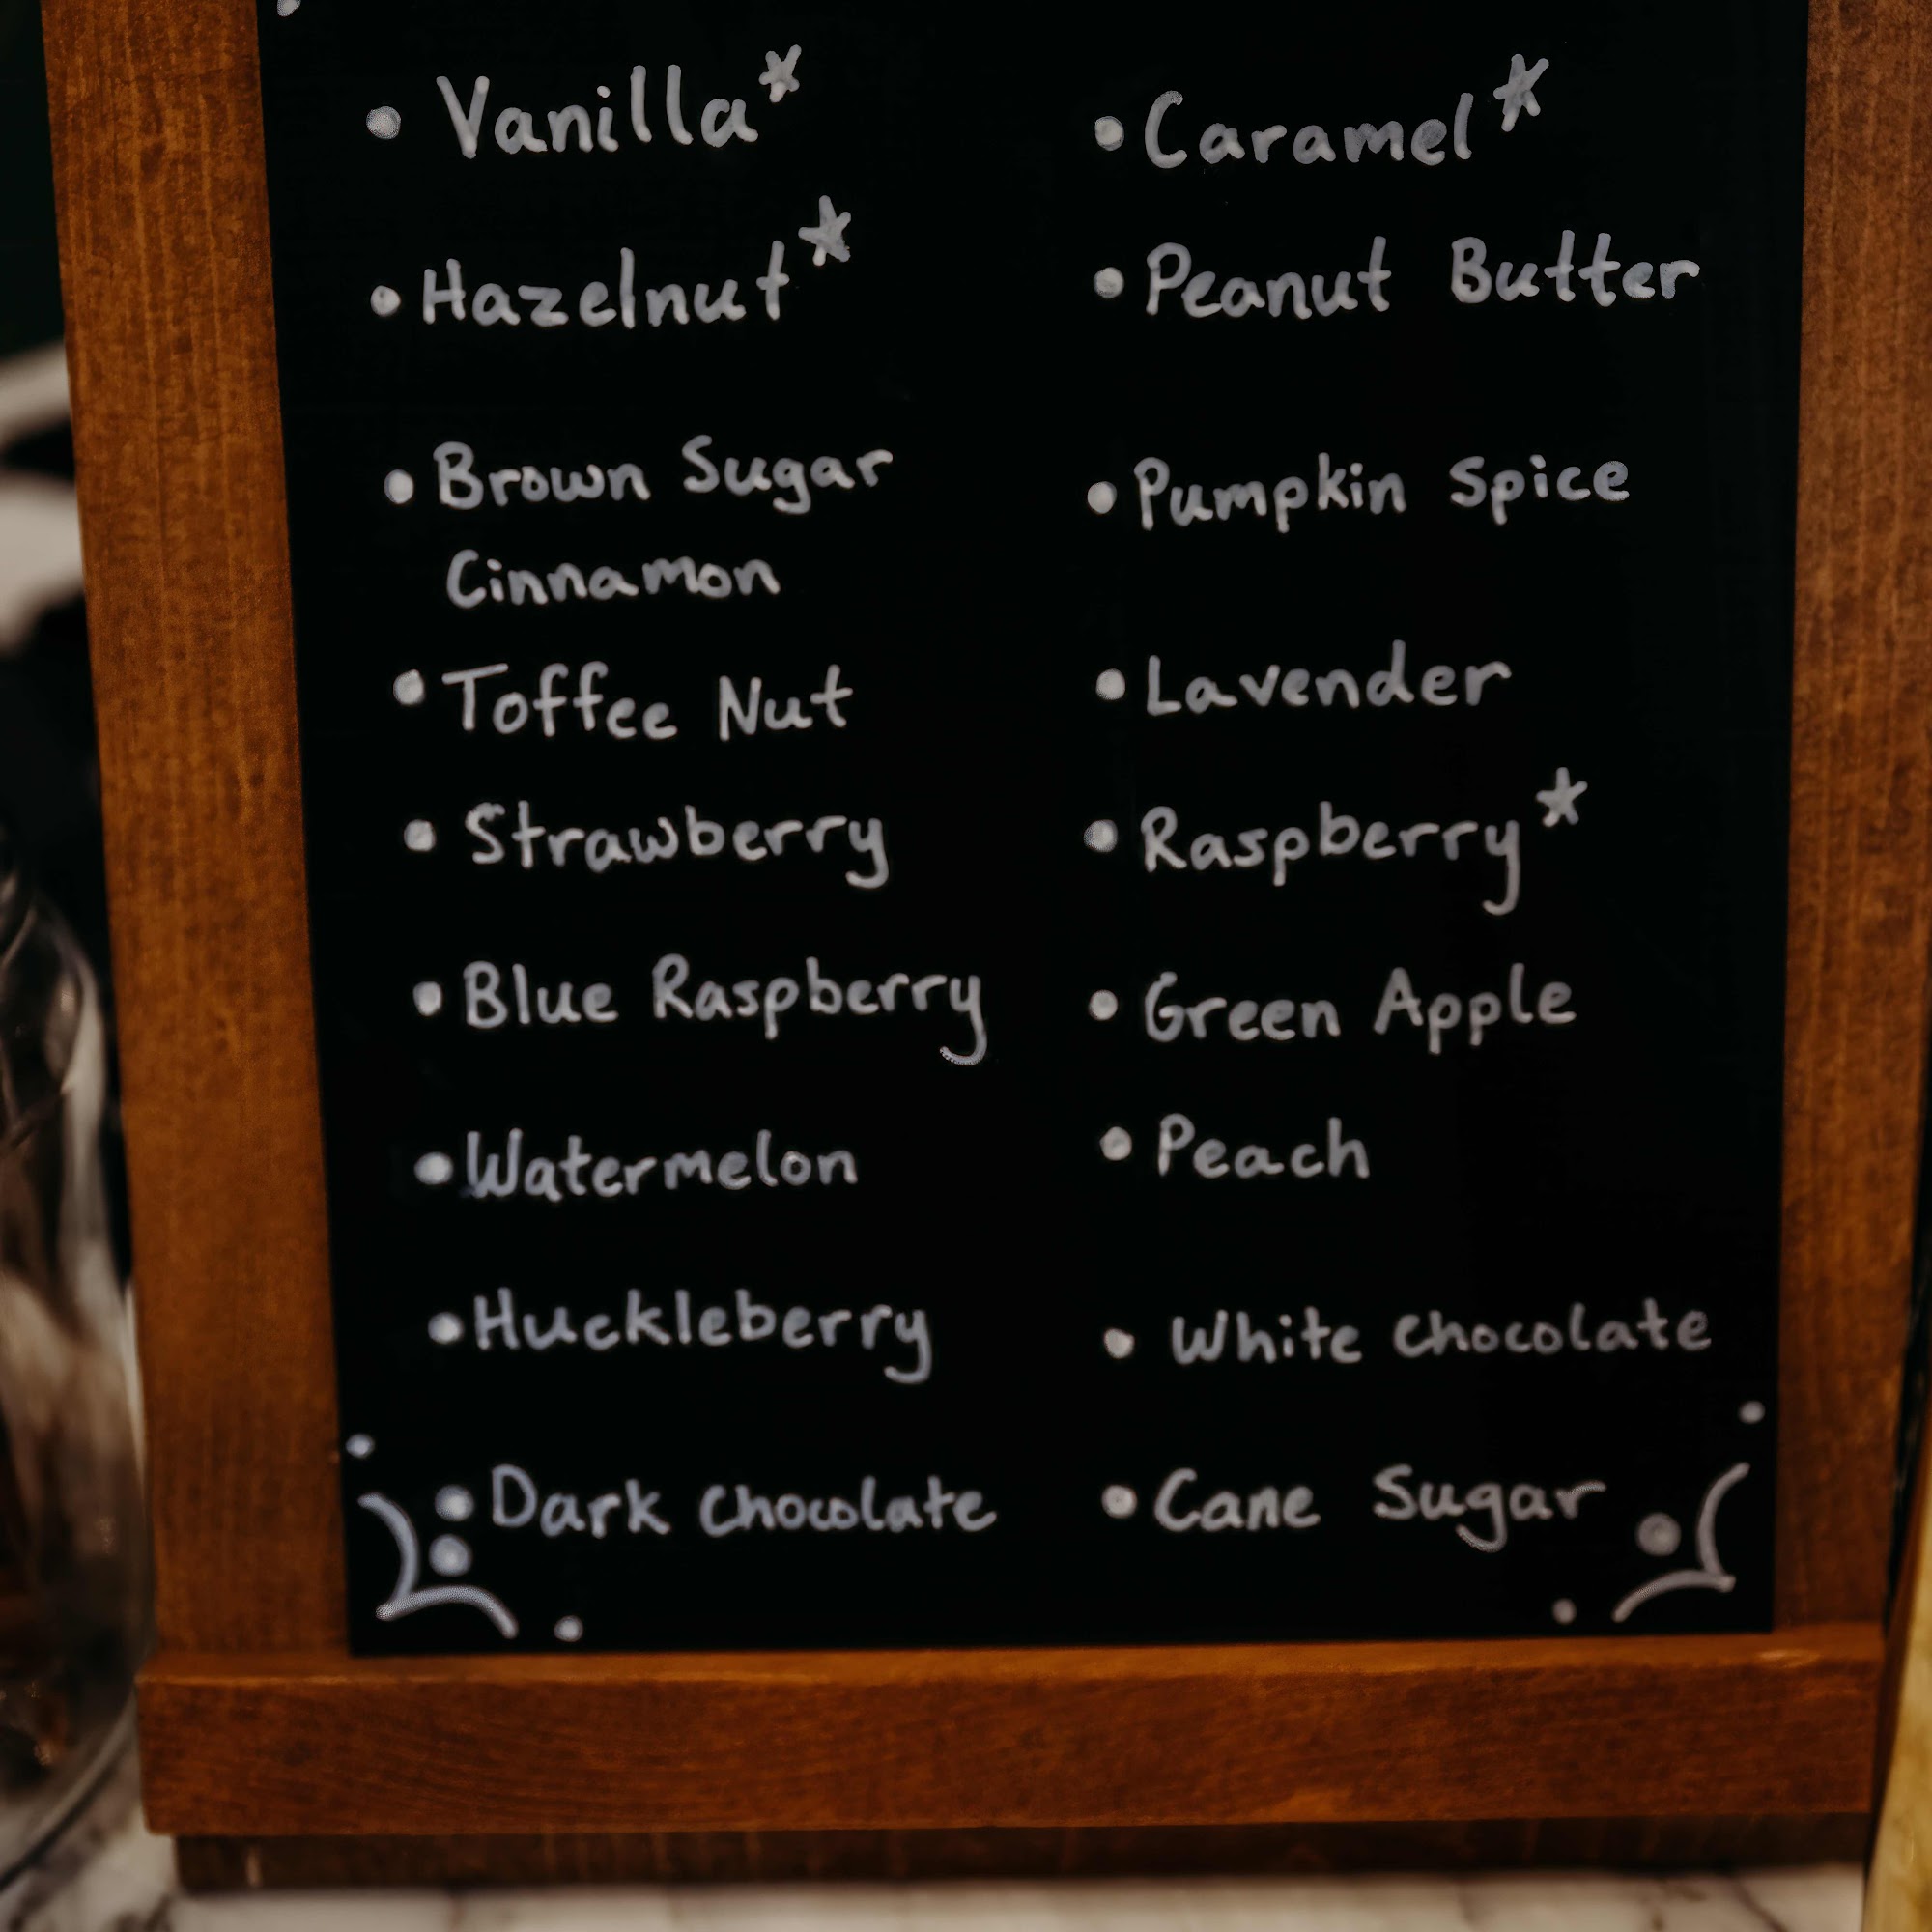 • Vanilla*
• Hazelnut*
• Brown Sugar
Cinnamon
• Toffee Nut
• Strawberry
• Blue Raspberry
• Watermelon
• Huckleberry
• Dark Chocolate
• Caramel*
• Peanut Butter
• Pumpkin Spice
• Lavender
• Raspberry*
• Green Apple
• Peach
• White Chocolate
• Cane Sugar